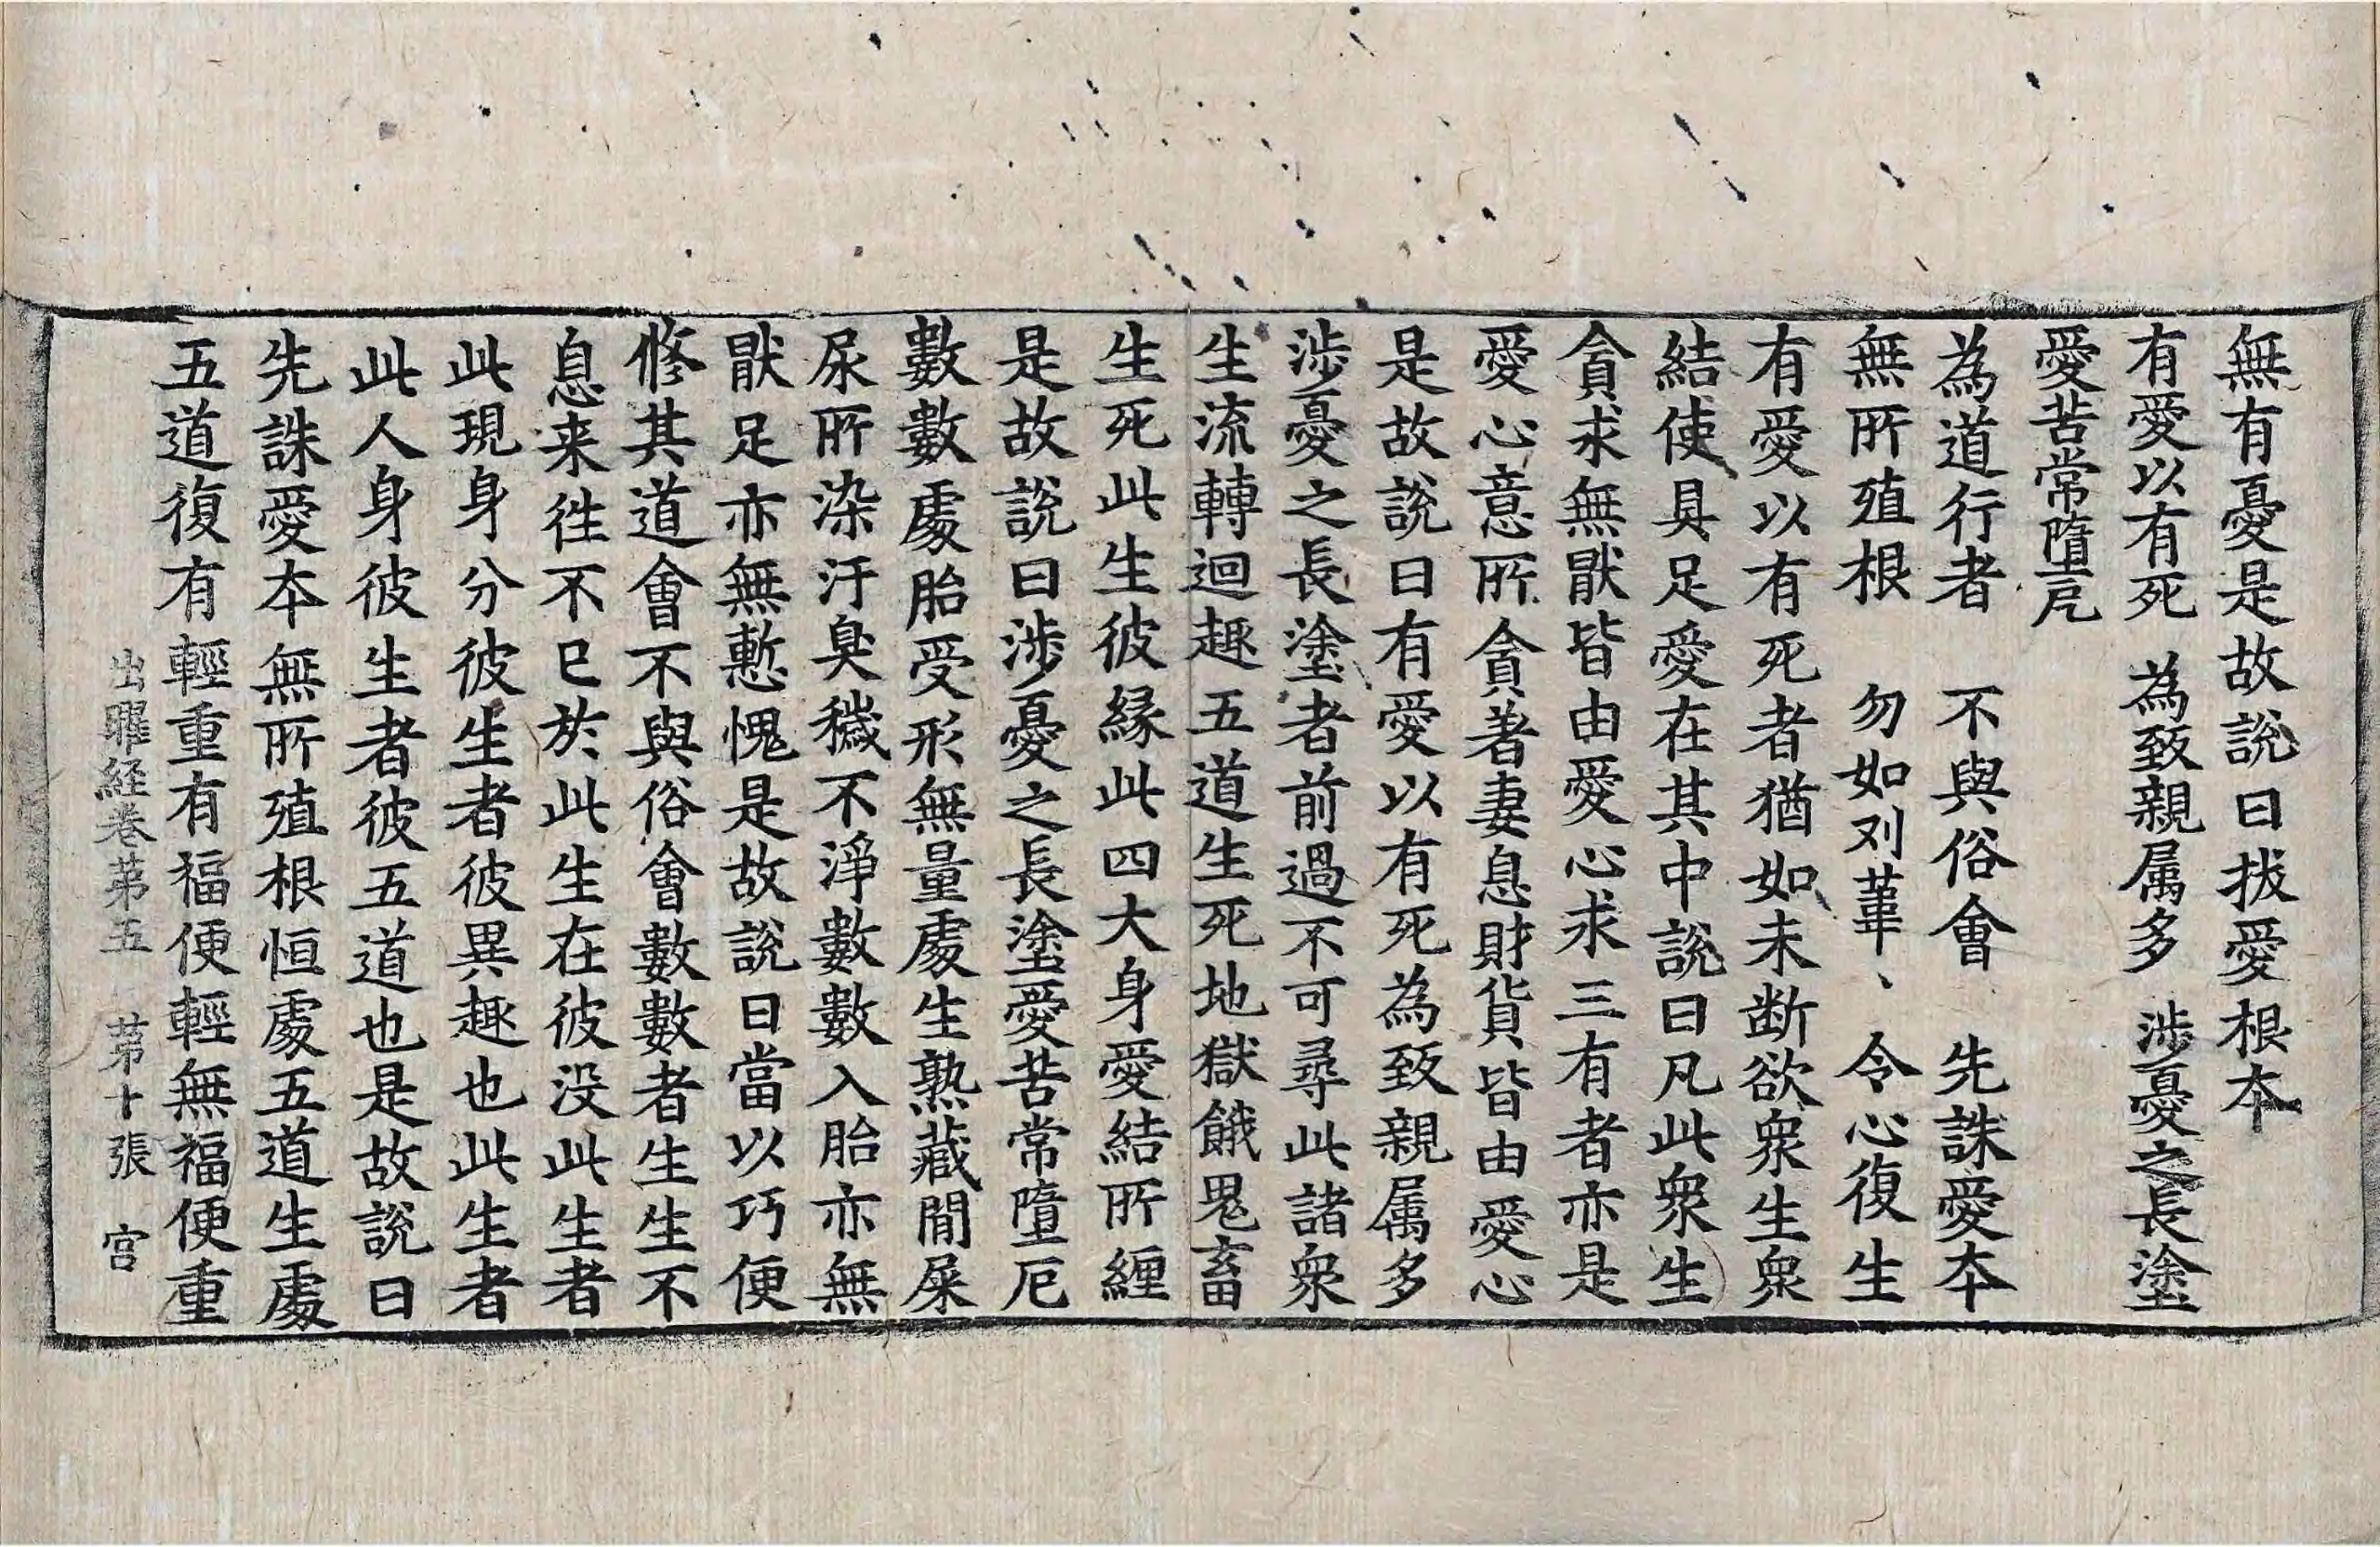 無有憂是故說曰拔愛根本
有愛以有死　為致親属多　涉憂之長塗
愛苦常墮厄
為道行者　不與俗會　先誅愛本
無所殖根　勿如刈葦、　令心復生
有愛以有死者猶如未断欲衆生衆
結使具足愛在其中說曰凡此衆生
貪求無猒皆由愛心求三有者亦是
愛心意所貪著妻息財貨皆由愛心
是故說曰有愛以有死為致親属多
涉憂之長塗者前過不可尋此諸衆
生流轉迴趣五道生死地獄餓鬼畜
生死此生彼緣此四大身愛結所纏
是故說曰涉憂之長塗愛苦常墮厄
數數處胎受形無量處生熟藏閒屎
尿所染汙臭穢不淨數數入胎亦無
猒足亦無慙愧是故說曰當以巧便
修其道會不與俗會數數者生生不
息来往不已於此生在彼没此生者
此現身分彼生者彼異趣也此生者
此人身彼生者彼五道也是故說曰
先誅愛本無所殖根恒處五道生處
五道復有輕重有福便輕無福便重
出曜経卷苐五　苐十張　宫